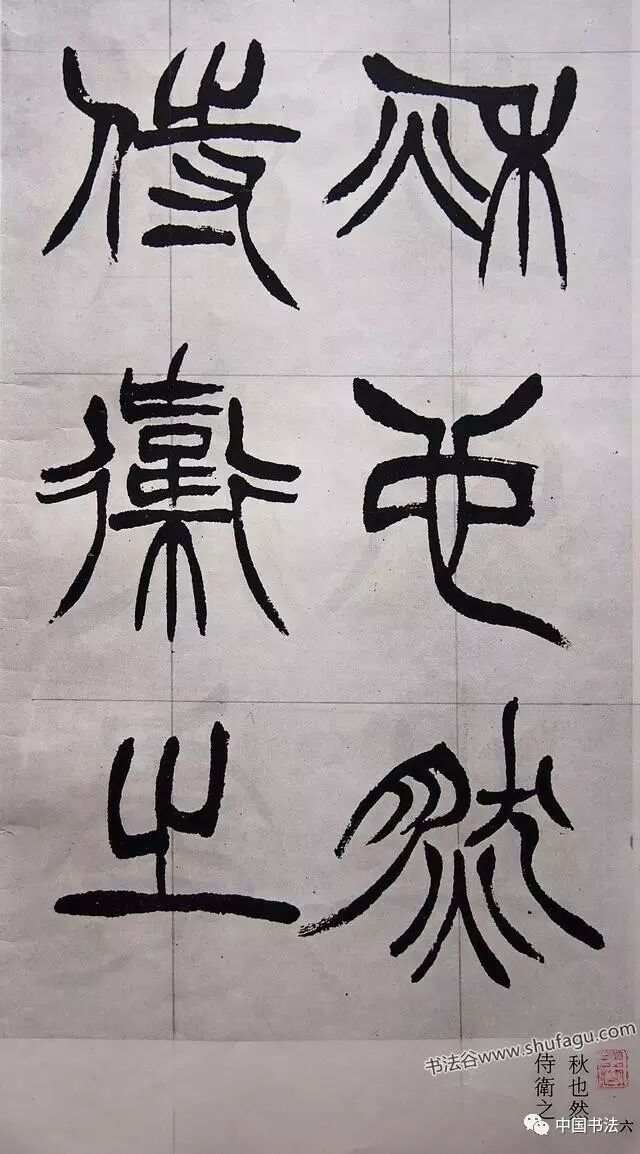 秋也然
侍衛之
书法谷www.shufagu.com
秋也然
侍衛之
六
中国书法